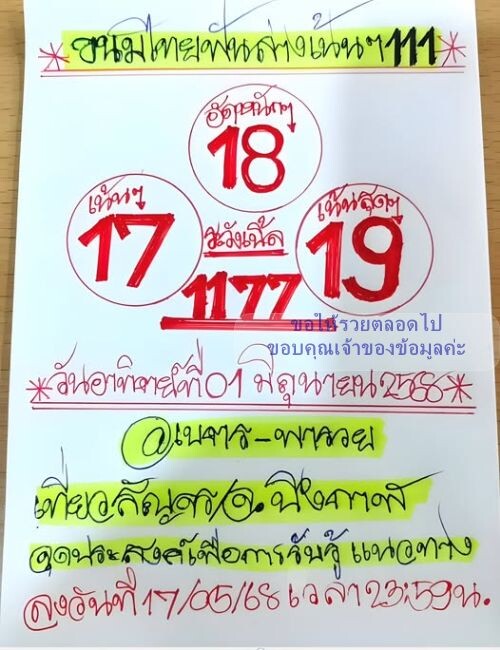 * ขนมไทยฟันล่างเน้นๆ 111 *
อัดหนักๆ
18
เน้นๆ
17
เน้นสุดๆ
19
ระวังเบิ้ล
1177
ขอให้รวยตลอดไป
ขอบคุณเจ้าของข้อมูลค่ะ
*วันอาทิตย์ที่ 01 มิถุนายน 2568*
@เนตร-พารวย
เที่ยว
เพื่อการรับรู้ แนวทาง
ลงวันที่ 17/05/68 เวลา 23:59 น.